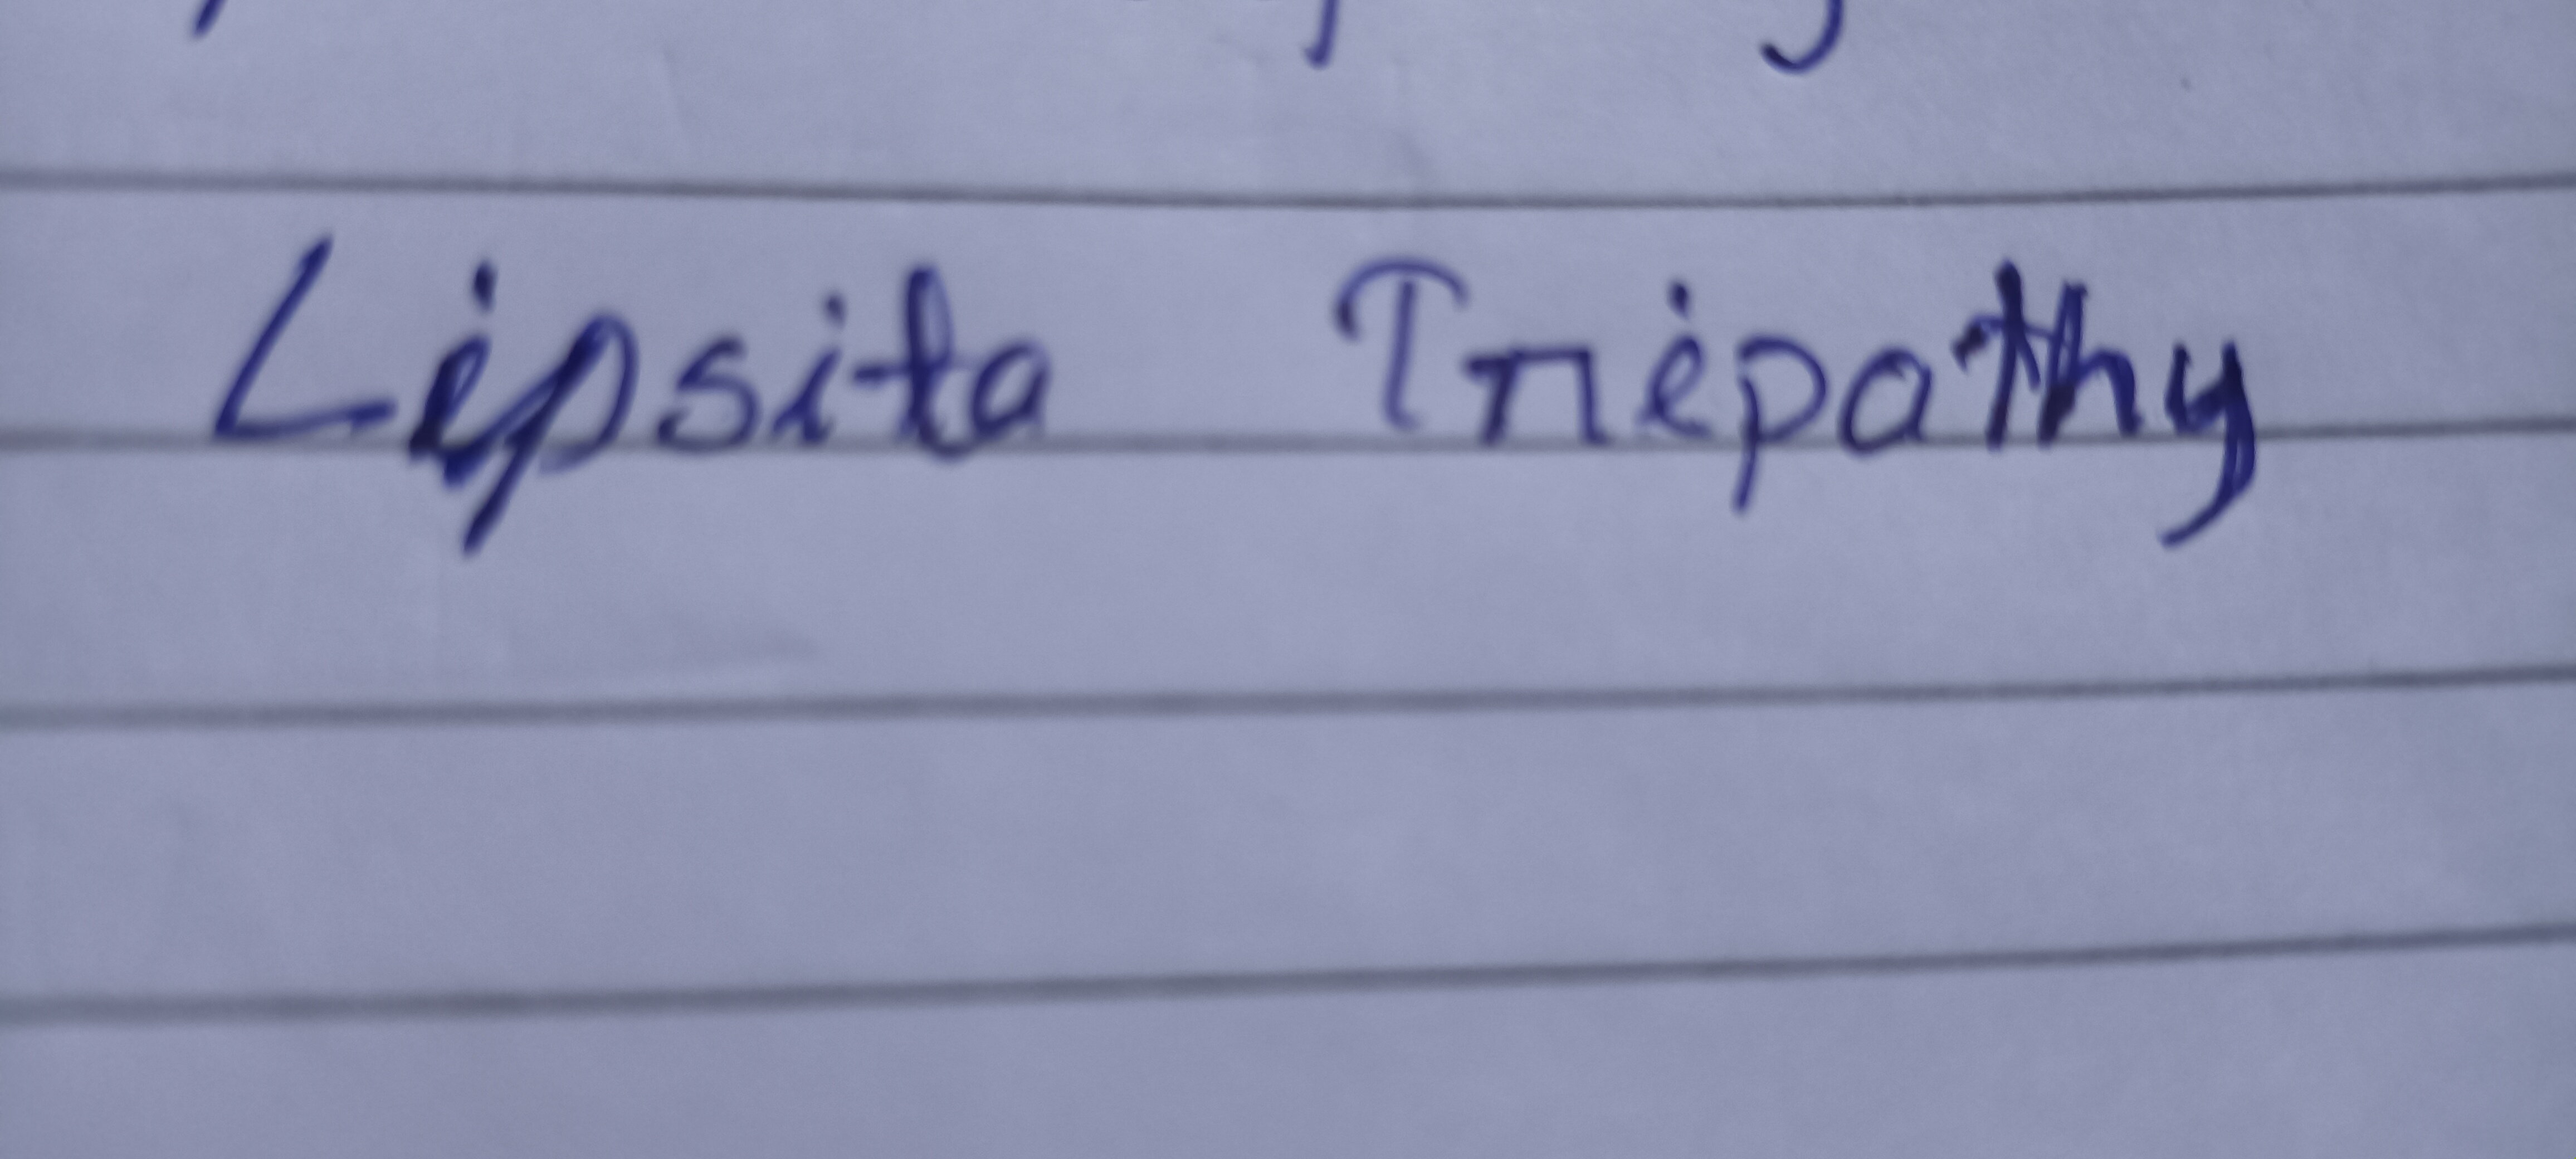 Lipsita Tripathy